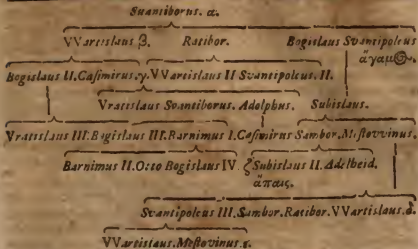 Suantiborus. α.
VVartislaus β. Ratibor. Bogislaus Svantipolcus
ἄγαμος.
Bogislaus II. Casimirus. γ. VVartislaus II Svantipolcus. II.
Vratislaus Svantiborus. Adolphus. Subislaus.
Vratislaus III. Bogislaus III. Barnimus I. Casimirus Sambor. Mestovvinus.
Barnimus II. Otto Bogislaus IV ζ Subislaus II. Adelbeid.
ἄπαις.
Svantipolcus III. Sambor. Ratibor. VVartislaus. δ.
VVartislaus. Mestovinus. ε.